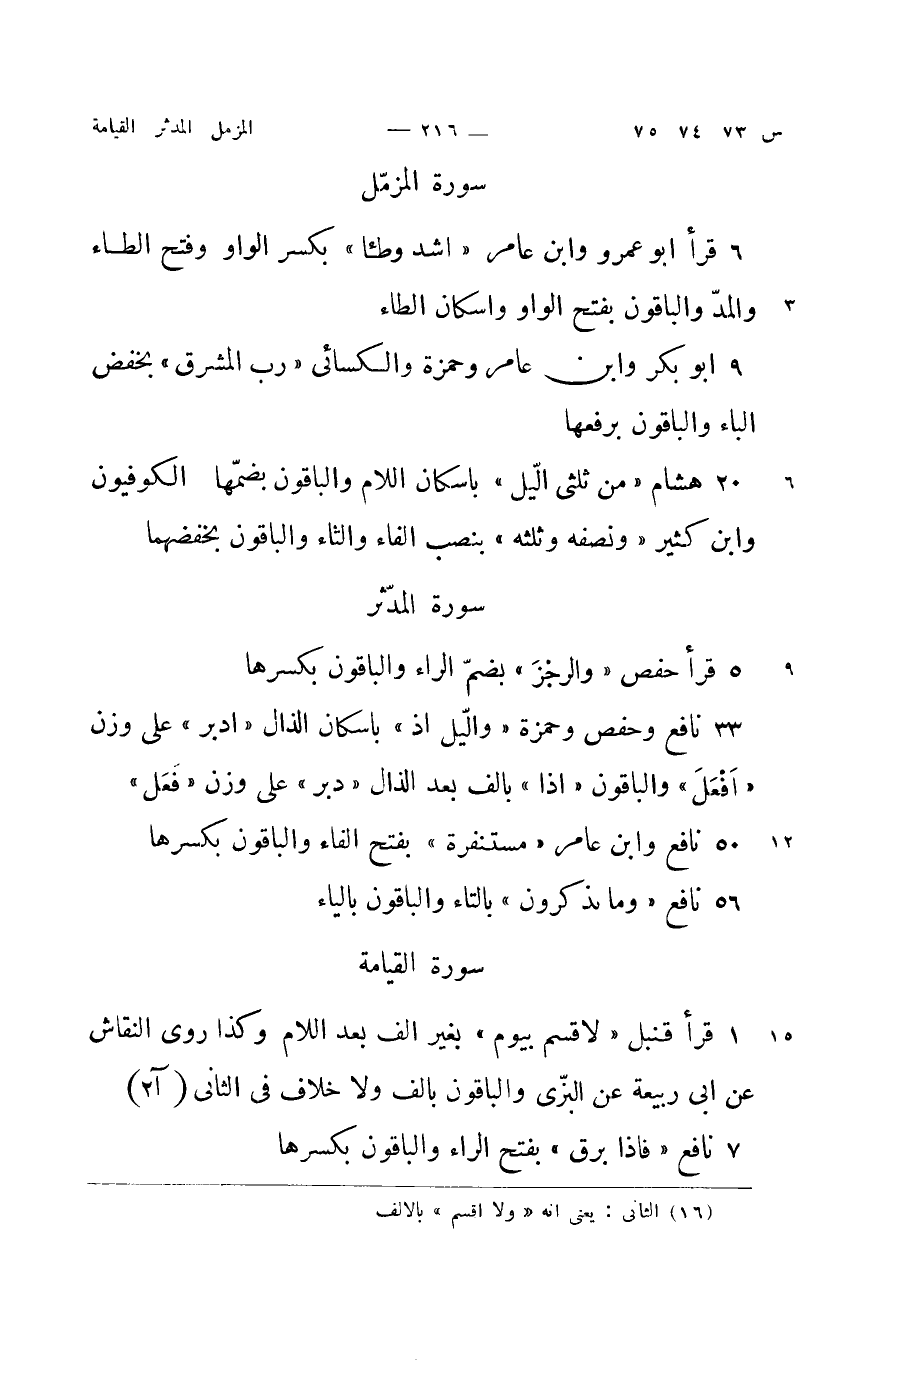 س ٧٣ ٧٤ ٧٥ — ٢١٦ — المزمل المدثر القيامة
سورة المزمّل
٦ قرأ ابو عمرو وابن عامر « اشد وطئا » بكسر الواو وفتح الطاء
٣ والمدّ والباقون بفتح الواو واسكان الطاء
٩ ابو بكر وابن عامر وحمزة والكسائى « رب المشرق » بخفض
الباء والباقون برفعها
٦ ٢٠ هشام « من ثلثى الّيل » باسكان اللام والباقون بضمّها الكوفيون
وابن كثير « ونصفه وثلثه » بنصب الفاء والثاء والباقون بخفضهما
سورة المدّثّر
٩ ٥ قرأ حفص « والرجْزَ » بضمّ الراء والباقون بكسرها
٣٣ نافع وحفص وحمزة « والّيل اذ » باسكان الذال « ادبر » على وزن
« اَفْعَلَ » والباقون « اذا » بالف بعد الذال « دبر » على وزن « فَعَل »
١٢ ٥٠ نافع وابن عامر « مستنفرة » بفتح الفاء والباقون بكسرها
٥٦ نافع « وما ىذكرون » بالتاء والباقون بالياء
سورة القيامة
١٥ ١ قرأ قنبل « لاقسم بيوم » بغير الف بعد اللام وكذا روى النقاش
عن ابى ربيعة عن البزّى والباقون بالف ولا خلاف فى الثانى (آ٢)
٧ نافع « فاذا برق » بفتح الراء والباقون بكسرها
(١٦) الثانى : يعنى انه « ولا اقسم » بالالف